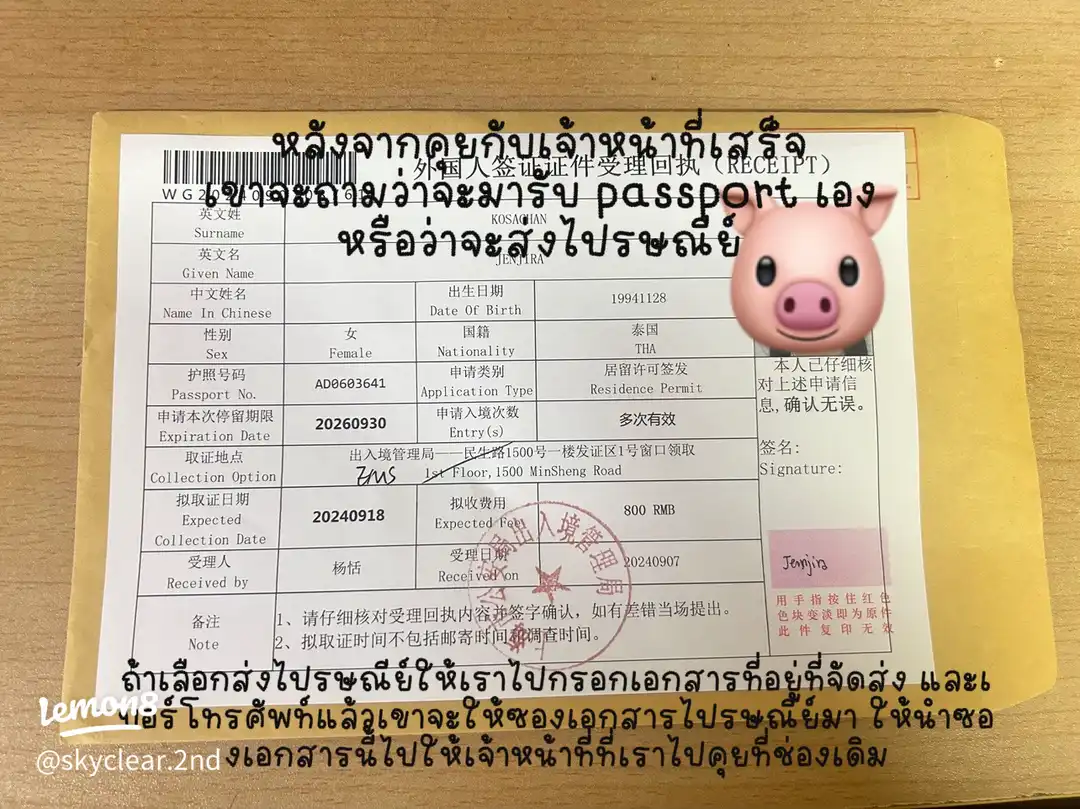 หลังจากคุยกับเจ้าหน้าที่เสร็จ
外国人签证证件受理回执 (RECEIPT)
เขาจะถามว่าจะมารับ passport เอง
หรือว่าจะส่งไปรษณีย์
英文姓 KOSACHAN
Surname
英文名 JENJIRA
Given Name
中文姓名 出生日期 19941128
Name In Chinese Date Of Birth
性别 女 国籍 泰国
Sex Female Nationality THA
护照号码 AD0603641 申请类别 居留许可签发
Passport No. Application Type Residence Permit
申请本次停留期限 20260930 申请入境次数 多次有效
Expiration Date Entry(s)
取证地点 出入境管理局——民生路1500号一楼发证区1号窗口领取
Collection Option EMS 1st Floor,1500 MinSheng Road
拟取证日期 20240918 拟收费用 800 RMB
Expected Expected Fee
Collection Date
受理人 杨恬 受理日期 20240907
Received by Received on
备注 1、请仔细核对受理回执内容并签字确认，如有差错当场提出。
Note 2、拟取证时间不包括邮寄时间 调查时间。
本人已仔细核
对上述申请信
息,确认无误。
签名:
Signature:
Jenjira
用手指按住红色
色块变淡即为原件
此件复印无效
出入境管理局
ถ้าเลือกส่งไปรษณีย์ให้เราไปกรอกเอกสารที่อยู่ที่จัดส่ง และเ
บอร์โทรศัพท์แล้วเขาจะให้ซองเอกสารไปรษณีย์มา ให้นำซอ
งเอกสารนี้ไปให้เจ้าหน้าที่ที่เราไปคุยที่ช่องเดิม
lemon8
@skyclear.2nd